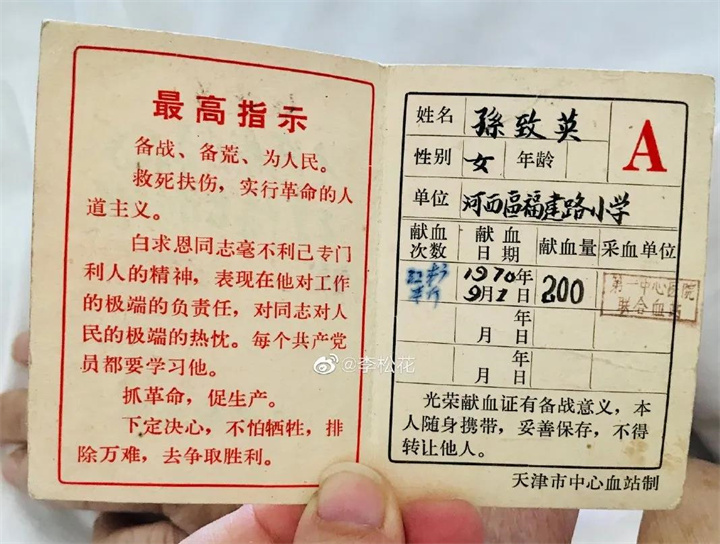 最高指示
备战、备荒、为人民。
救死扶伤，实行革命的人
道主义。
白求恩同志毫不利己专门
利人的精神，表现在他对工作
的极端的负责任，对同志对人
民的极端的热忱。每个共产党
员都要学习他。
抓革命，促生产。
下定决心，不怕牺牲，排
除万难，去争取胜利。
姓名 孫致英
A
性别 女 年龄
单位 河西區福建路小学
献血次数 献血日期 献血量 采血单位
1970年9月1日 200 第一中心医院联合血站
年月日
年月日
光荣献血证有备战意义，本
人随身携带，妥善保存，不得
转让他人。
天津市中心血站制
@李松花